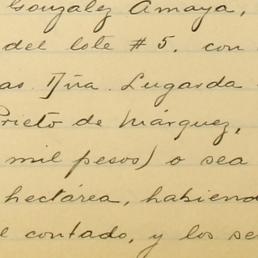 Gonzalez Amaya,
del lote # 5. con
as Dña. Lugarda
Prieto de Márquez,
mil pesos) o sea
hectárea, habiend
e contado, y los se